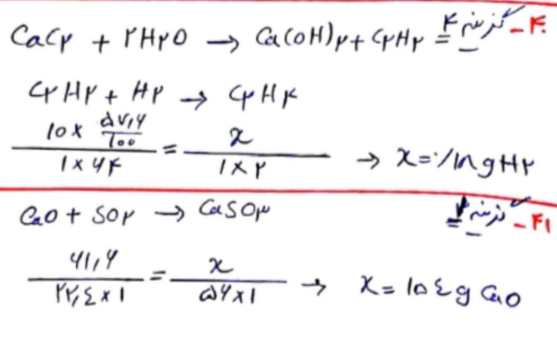 ۴۰- گزینه ۴
CaC۲ + ۲H۲O → Ca(OH)۲ + C۲H۲
C۲H۲ + H۲ → C۲H۴
(۱۰ × ۵۷٫۶/۱۰۰)/(۱×۶۴) = x/(۱×۲) → x = ٫۱۸ g H۲
۴۱- گزینه ۱
CaO + SO۲ → CaSO۳
۴۱٫۶/(۲۲٫٤×۱) = x/(۵۶×۱) → x = ۱۰٤ g CaO